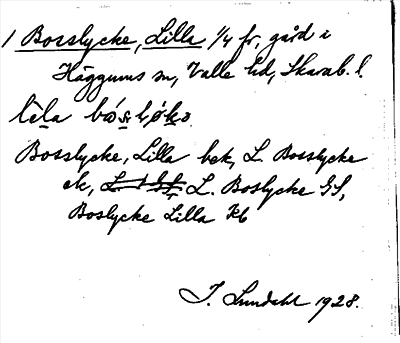 1 Bosslycke, Lilla 1/4 fr, gård i
Häggums sn, Valle hd, Skarab. l.
Bosslycke, Lilla bek, L. Bosslycke
ek, L. Boslycke GS,
Boslycke Lilla Kb
I. Lundahl 1928.